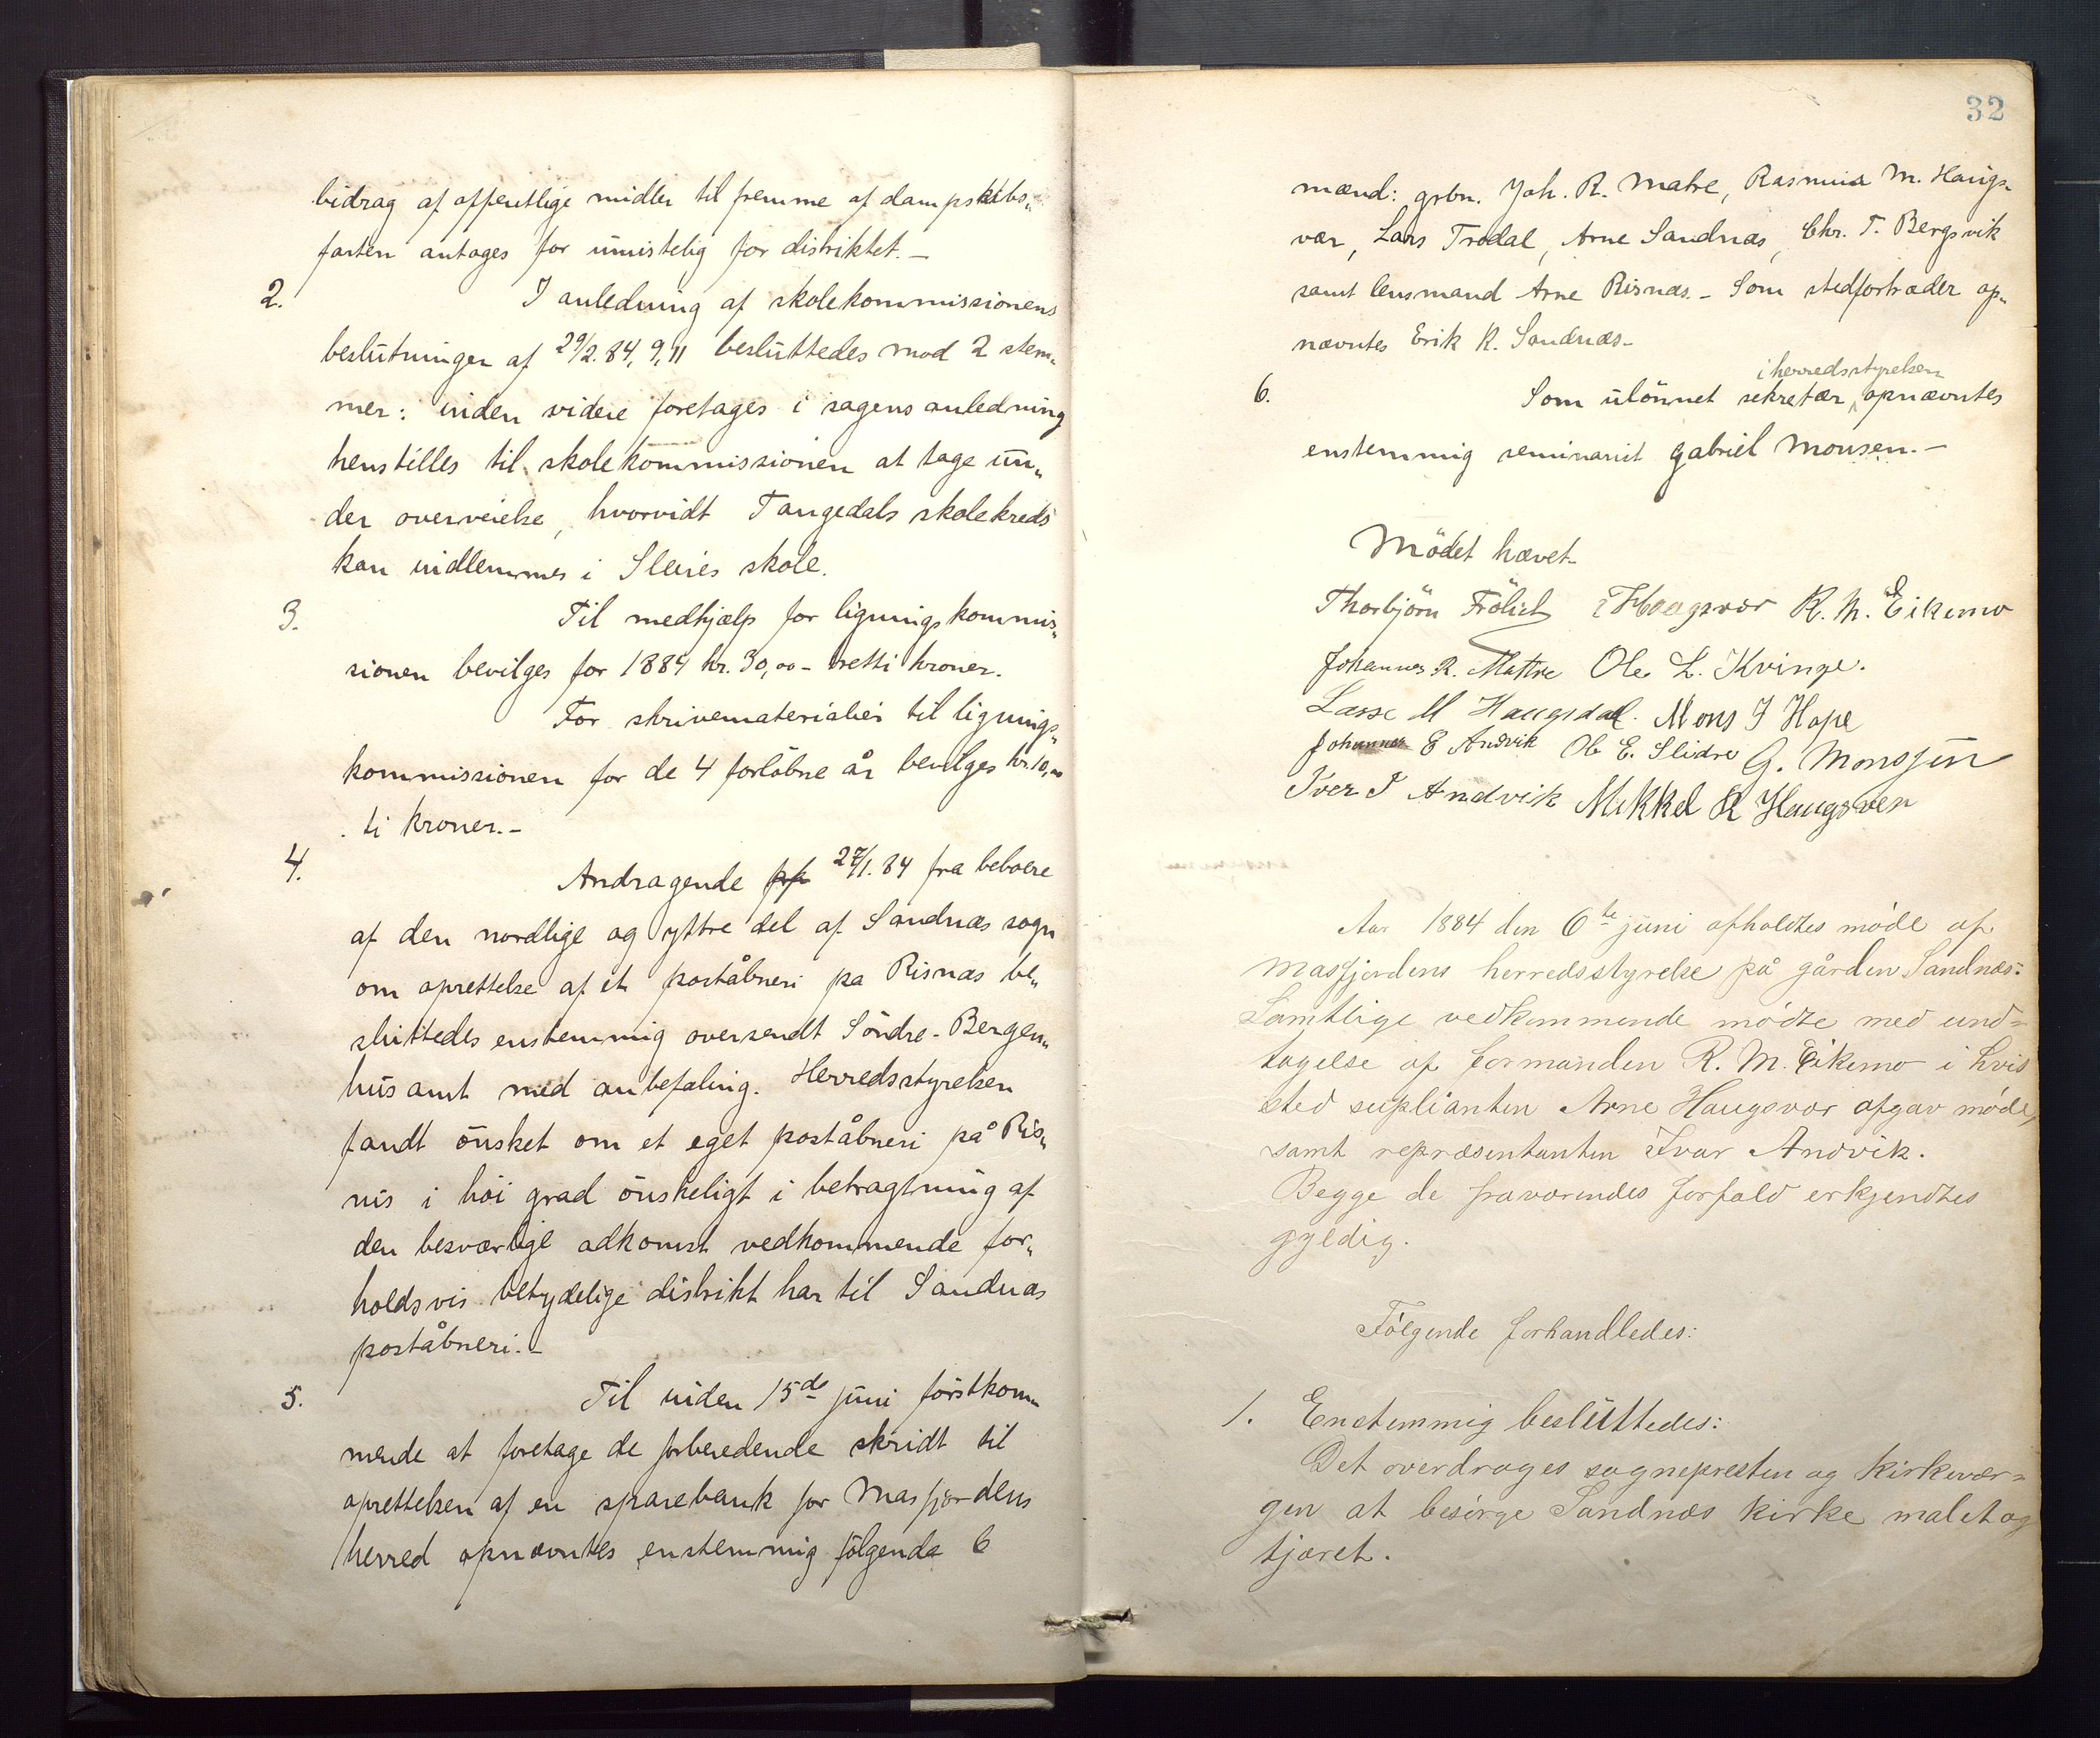 bidrag af offentlige midler til fremme af dampskibs„
farten antages for umistelig for distriktet. –
2. I anledning af skolekommissionens
beslutninger af 29/2. 84, 9, 11 besluttedes mod 2 stem„
mer: inden videre foretages i sagens anledning
henstilles til skolekommissionen at tage un„
der overveielse, hvorvidt Tangedals skolekreds
kan indlemmes i Sleires skole.
3. Til medhjælp for ligningskommis„
sionen bevilges for 1884 kr. 30,00 – tretti kroner.
For skrivematerialier til lignings„
kommissionen for de 4 forløbne år bevilges kr. 10,00
ti kroner. –
4. Andragende 27/1. 84 fra beboere
af den nordlige og yttre del af Sandnæs sogn
om oprettelse af et poståbneri på Risnæs be„
sluttedes enstemmig oversendt Söndre-Bergen„
hus amt med anbefaling. Herredsstyrelsen
fandt önsket om et eget poståbneri på Ris„
næs i höi grad önskeligt i betragtning af
den besværlige adkomst vedkommende for„
holdsvis betydelige distrikt har til Sandnæs
poståbneri. –
5. Til inden 15de juni förstkom„
mende at foretage de forberedende skridt til
oprettelsen af en sparebank for Masfjordens
herred opnævntes enstemmig følgende 6
32
mænd: grbr. Joh. R. Matre, Rasmus M. Haugs„
vær, Lars Trodal, Arne Sandnæs, Chr. T. Bergsvik
samt lensmand Arne Risnæs. – Som stedfortræder op„
nævntes Erik K. Sandnæs. –
i herredsstyrelsen
6. Som ulönnet sekretær opnævntes
enstemmig seminarist Gabriel Monsen. –
Mödet hævet.
Thorbjörn Frölich Haugsvær R. M. Eikemo
Johannes R. Mattre Ole L. Kvinge.
Lasse M Haugsdal. Mons J Hope
Johannes E Andvik Ole E. Slidre G. Monssen
Iver I Andvik Mikkel R Haugsvær
Aar 1884 den 6te juni afholdtes møde af
Masfjordens herredsstyrelse på gården Sandnæs:
Samtlige vedkommende mødte med und=
tagelse af formanden R. M. Eikemo i hvis
sted suplianten Arne Haugsvær afgav møde,
samt repræsentanten Ivar Andvik.
Begge de fraværendes forfald erkjendtes
gyldig.
Følgende forhandledes:
1. Enstemmig besluttedes:
Det overdrages sognepresten og kirkevær=
gen at besørge Sandnæs kirke malet og
tjæret.